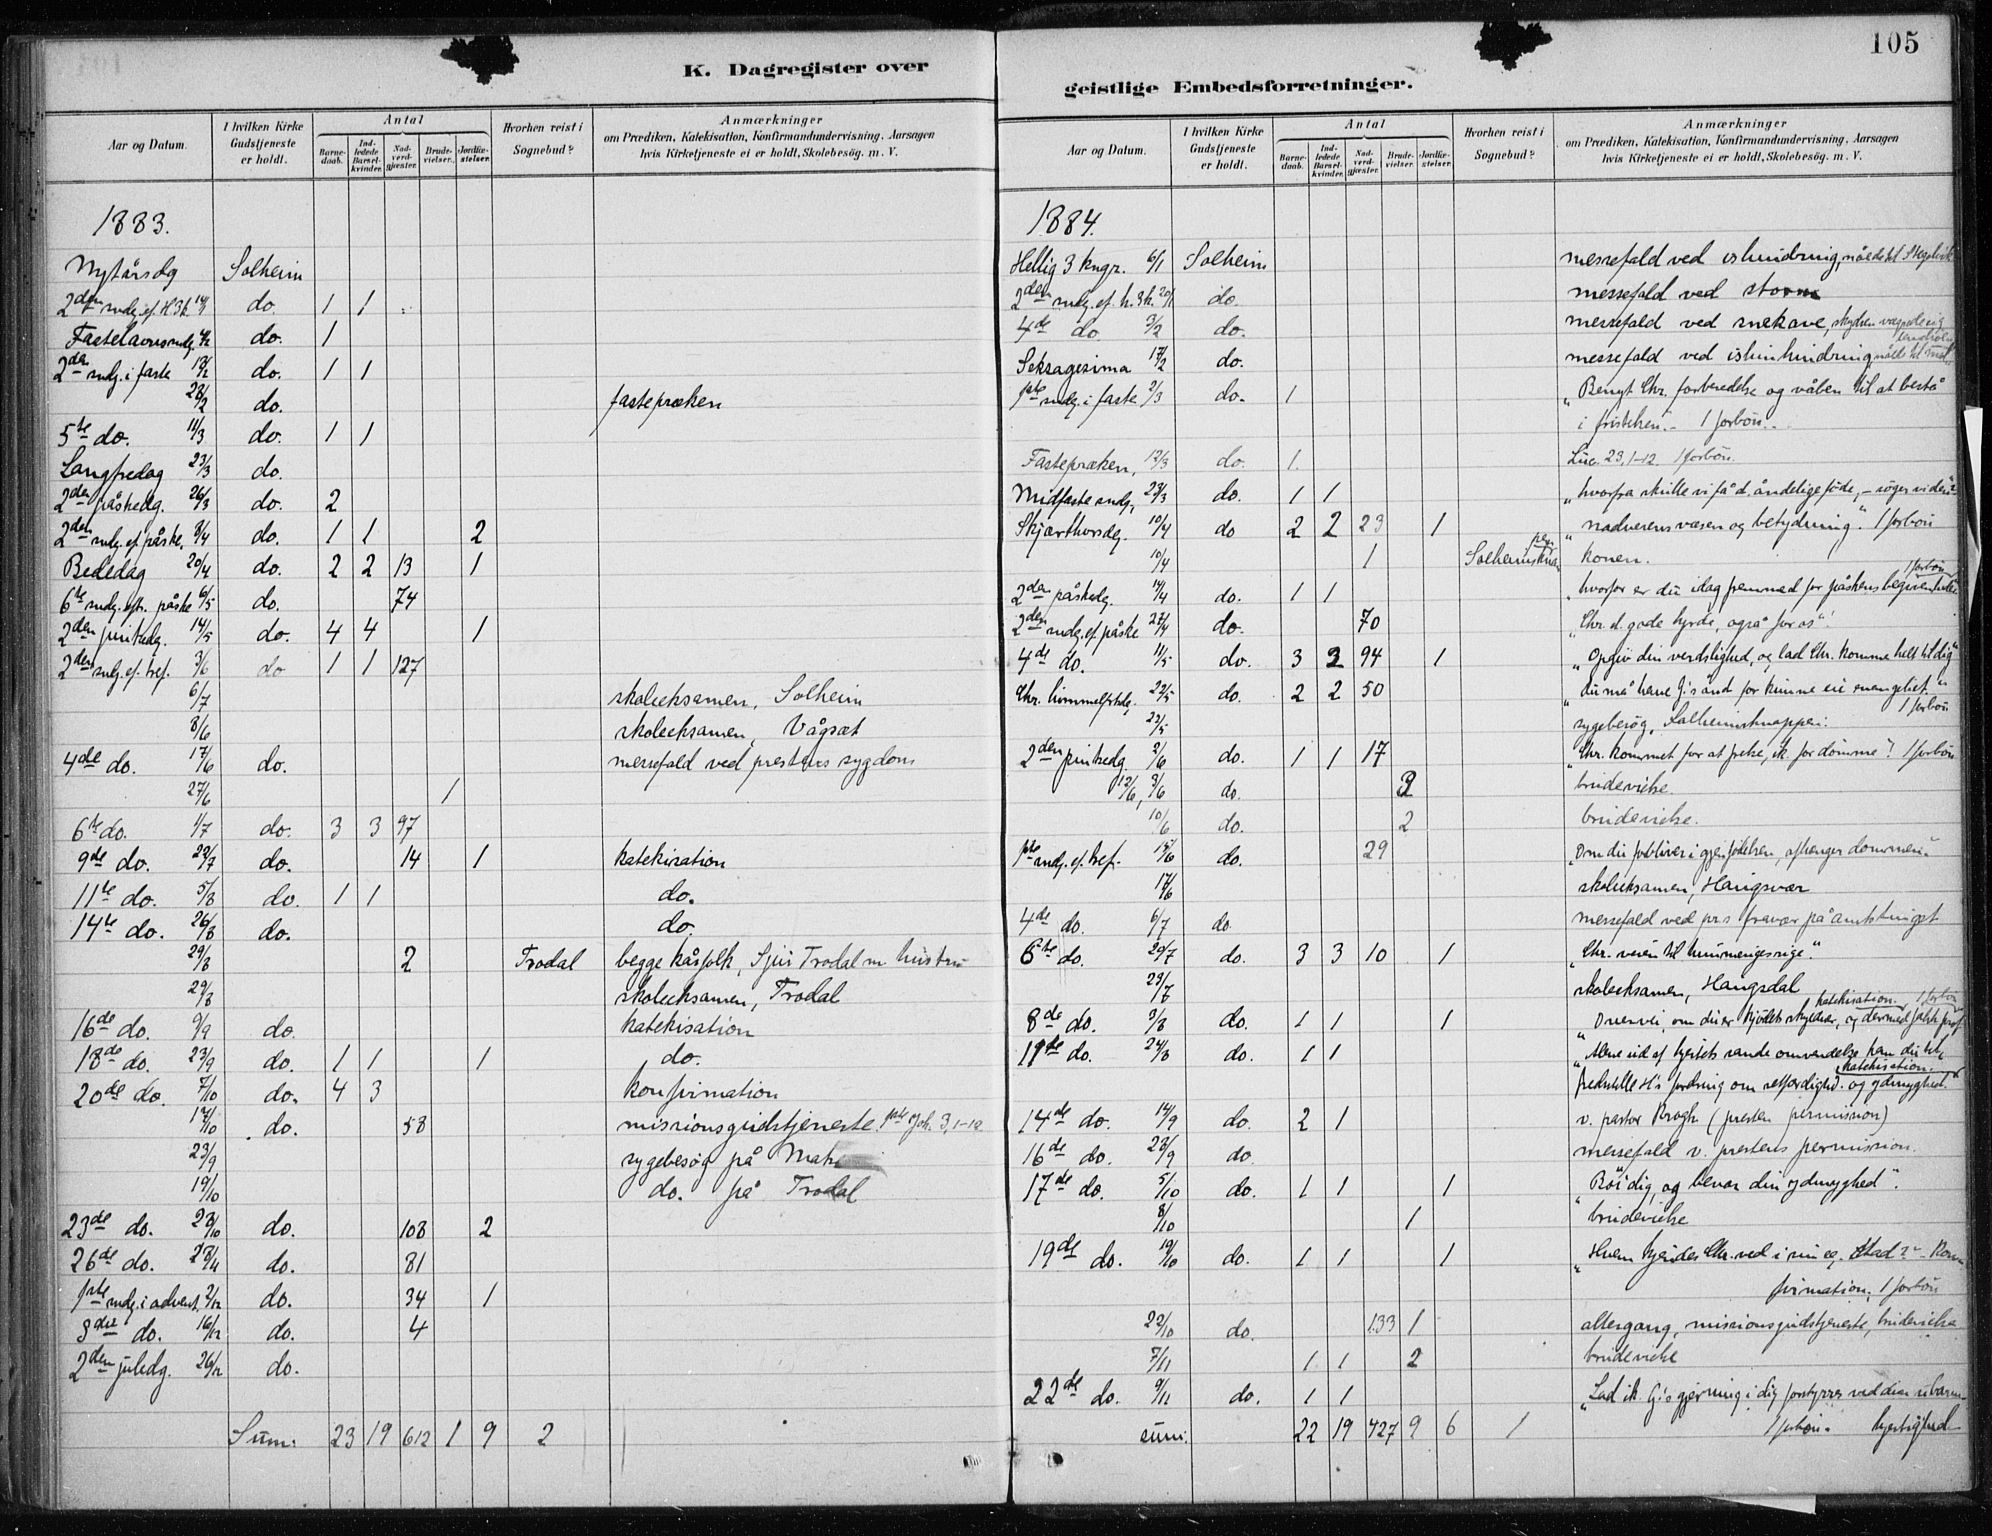 105
K. Dagregister over
Aar og Datum.
I hvilken Kirke Gudstjeneste er holdt.
Antal
Barnedaab.
Indledede Barselkvinder.
Nadverdgjæster.
Brudevielser.
Jordfæstelser.
Hvorhen reist i Sognebud?
Anmærkninger
om Prædiken, Katekisation, Konfirmandundervisning, Aarsagen
hvis Kirketjeneste ei er holdt, Skolebesög. m. V.
1883.
Nytårsdg Solheim
2den sndg. ef. H3k. 14/1 do. 1 1
Fastelavnssndg. 4/2 do. 1
2den sndg. i faste 18/2 do. 1 1
28/2 do. fastepræken
5te do. 11/3 do. 1 1
Langfredag 23/3 do.
2den påskedg. 26/3 do. 2
2den sndg. ef. påske. 8/4 do. 1 1 2
Bededag 20/4 do. 2 2 13 1
6te sndg. eftr. påske 6/5 do. 74
2den pintsedg. 14/5 do. 4 4 1
2den sndg. ef. tref. 3/6 do 1 1 127
6/7 skoleeksamen, Solheim
8/6 skoleeksamen, Vågsæt
4de do. 17/6 do. messefald ved prestens sygdom
27/6 1
6te do. 1/7 do. 3 3 97
9de do. 22/7 do. 14 1 katekisation
11te do. 5/8 do. 1 1 do.
14te do. 26/8 do. do.
29/8 2 Trodal begge kåsfolk, Sjur Trodal m hustru
29/8 skoleeksamen, Trodal
16de do. 9/9 do. katekisation
18de do. 23/9 do. 1 1 1 do.
20de do. 7/10 do. 4 3 konfirmation
14/10 do. 58 missionsgudstjeneste. 1ste Joh. 3,1-12
23/9 sygebesög på
19/10 do. på Trodal
23de do. 28/10 do. 108 2
26de do. 18/11 do. 81
1ste sndg. i advent. 2/12 do. 34 1
3die do. 16/12 do. 4
2den juledg. 26/12 do.
Sum: 23 19 612 1 9 2
geistlige Embedsforretninger.
Aar og Datum.
I hvilken Kirke Gudstjeneste er holdt.
Antal
Barnedaab.
Indledede Barselkvinder.
Nadverdgjæster.
Brudevielser.
Jordfæstelser.
Hvorhen reist i Sognebud?
Anmærkninger
om Prædiken, Katekisation, Konfirmandundervisning, Aarsagen
hvis Kirketjeneste ei er holdt, Skolebesög. m. V.
1884.
Hellig 3 kngr. 6/1 Solheim messefald ved ishindring, nåede til
2den sndg. ef. h. 3k. 20/1 do. messefald ved storm
4de do. 3/2 do. messefald ved snekave, skydsen vægrede sig
Seksagesima 17/2 do. messefald ved ishinhindring,
1ste sndg. i faste 2/3 do. 1 "Benyt Chr. forberedelse og våben til at bestå
i fristelsen. - 1 forbön.
Fastepræken, 12/3 do. 1. Luc. 23, 1-12. 1 forbön.
Midfaste sndg. 23/3 do. 1 1 "hvorfra skulle vi få d. åndelige föde, - söger vi den?"
Skjærthorsdg. 10/4 do 2 2 23 1 "nadverens væsen og betydning". 1 forbön
10/4 1 Solheims konen.
2den påskedg. 14/4 do. 1 1 "hvorfor er du idag fremmed for påskens begivenheder" 1 forbön
2den sndg. ef. påske 27/4 do. 70 "Chr. d. gode hyrde, også for os".
4de do. 11/5 do. 3 3 94 1 "Opgiv din verdslighed, og lad Chr. komme helt til dig"
Chr. himmelfrtsdg. 22/5 do. 2 2 50 "du må have G's ånd for kunne eie evangeliet." 1 forbön
23/5 sygebesög, Solheimsknappen.
2den pintsedg. 2/6 do. 1 1 17 "Chr. kommet for at frelse, ik. for dömme". 1 forbön
12/6, 3/6 do. 2 brudevielse.
10/6 do. 2 brudevielse.
1ste sndg. ef. tref. 15/6 do. 29 "Om du forbliver i gjenfödelsen, afhænger dommen."
17/6 skoleeksamen, Haugsvær
4de do. 6/7 do. messefald ved prs fravær på amtstinget
6te do. 20/7 do. 3 3 10 1 "Chr. veien til himmeriges rige".
23/7 skoleeksamen, Haugsdal
8de do. 3/8 do. 1 1 1 katekisation. 1 forbön
11te do. 24/8 do. 1 1 "Alene ud af hjertets sande omvendelse kan du
fredstille H's fordring om retfærdighed og ydmyghed." katekisation.
14de do. 14/9 do. 2 1 v. pastor Brogh (presten permission)
16de do. 28/9 do. messefald v. prestens permission.
17de do. 5/10 do. 1 1 1 "Böi dig, og bevar din ydmyghed".
8/10 1 brudevielse
19de do. 19/10 do. 1 1 1 "Hvem kjendes Chr. ved i sin eg. Stad?" - Konfirmation, 1 forbön
22/10 do. 133 1 altergang, missionsgudstjeneste, brudevielse
7/11 1 1 2 brudevielse
22de do. 9/11 do. 1 1 "Lad ik. G's gjerning i dig forstyrres ved din ubarmhjertighed 1 forbön.
sum: 22 19 427 9 6 1